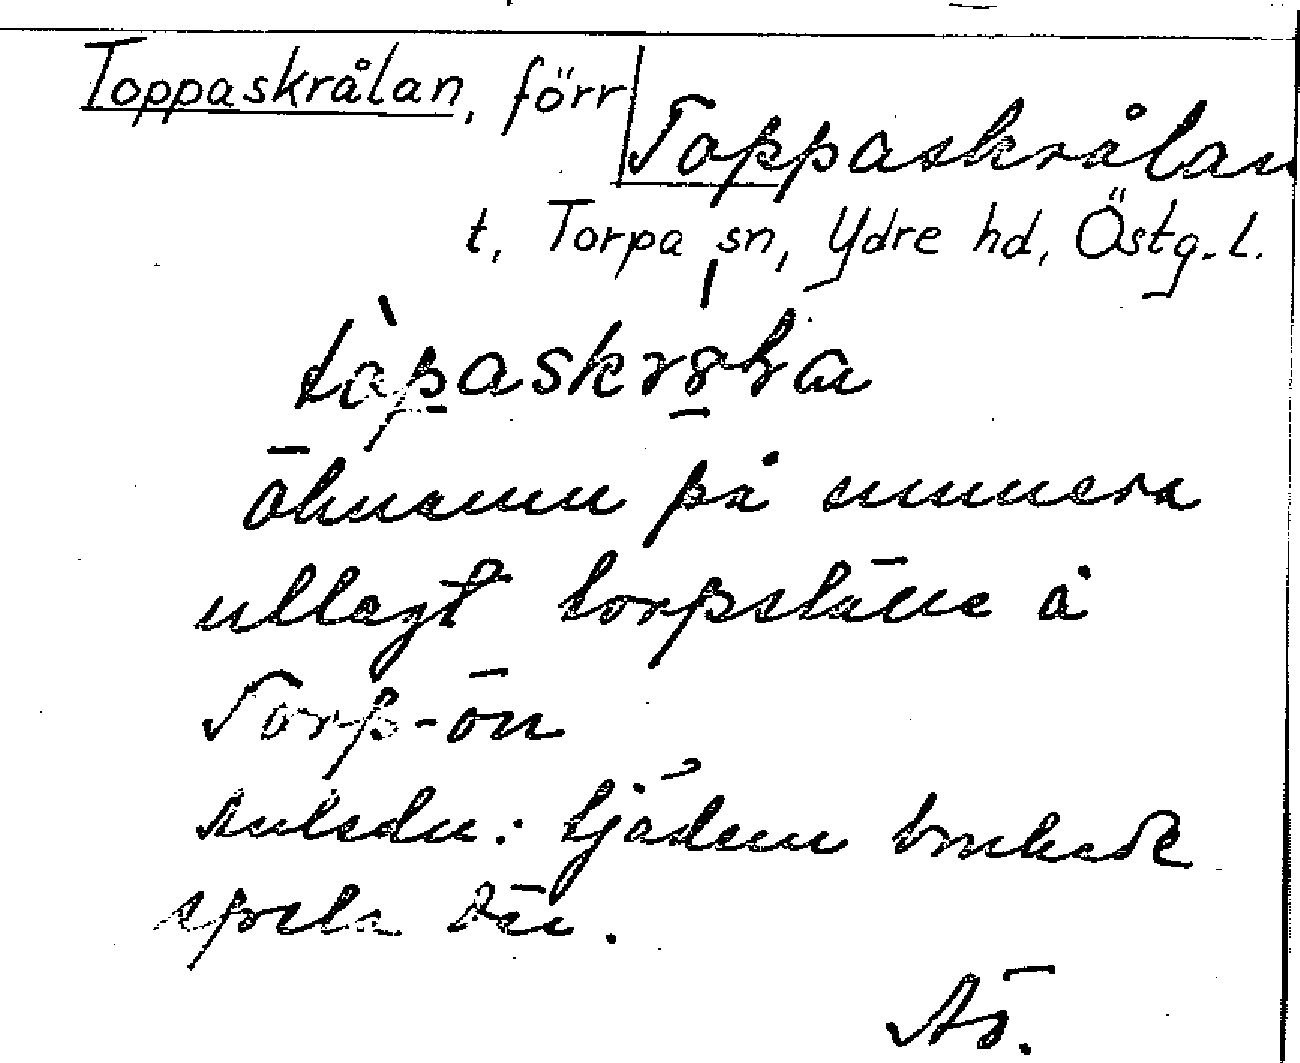 Toppaskrålan, förr
Toppaskrålan
t, Torpa sn, Ydre hd, Östg. l.
öknamn på numera
utlagt torpställe å
Torp-ön
Anledn.: tjädern brukade
spela där.
Aö.